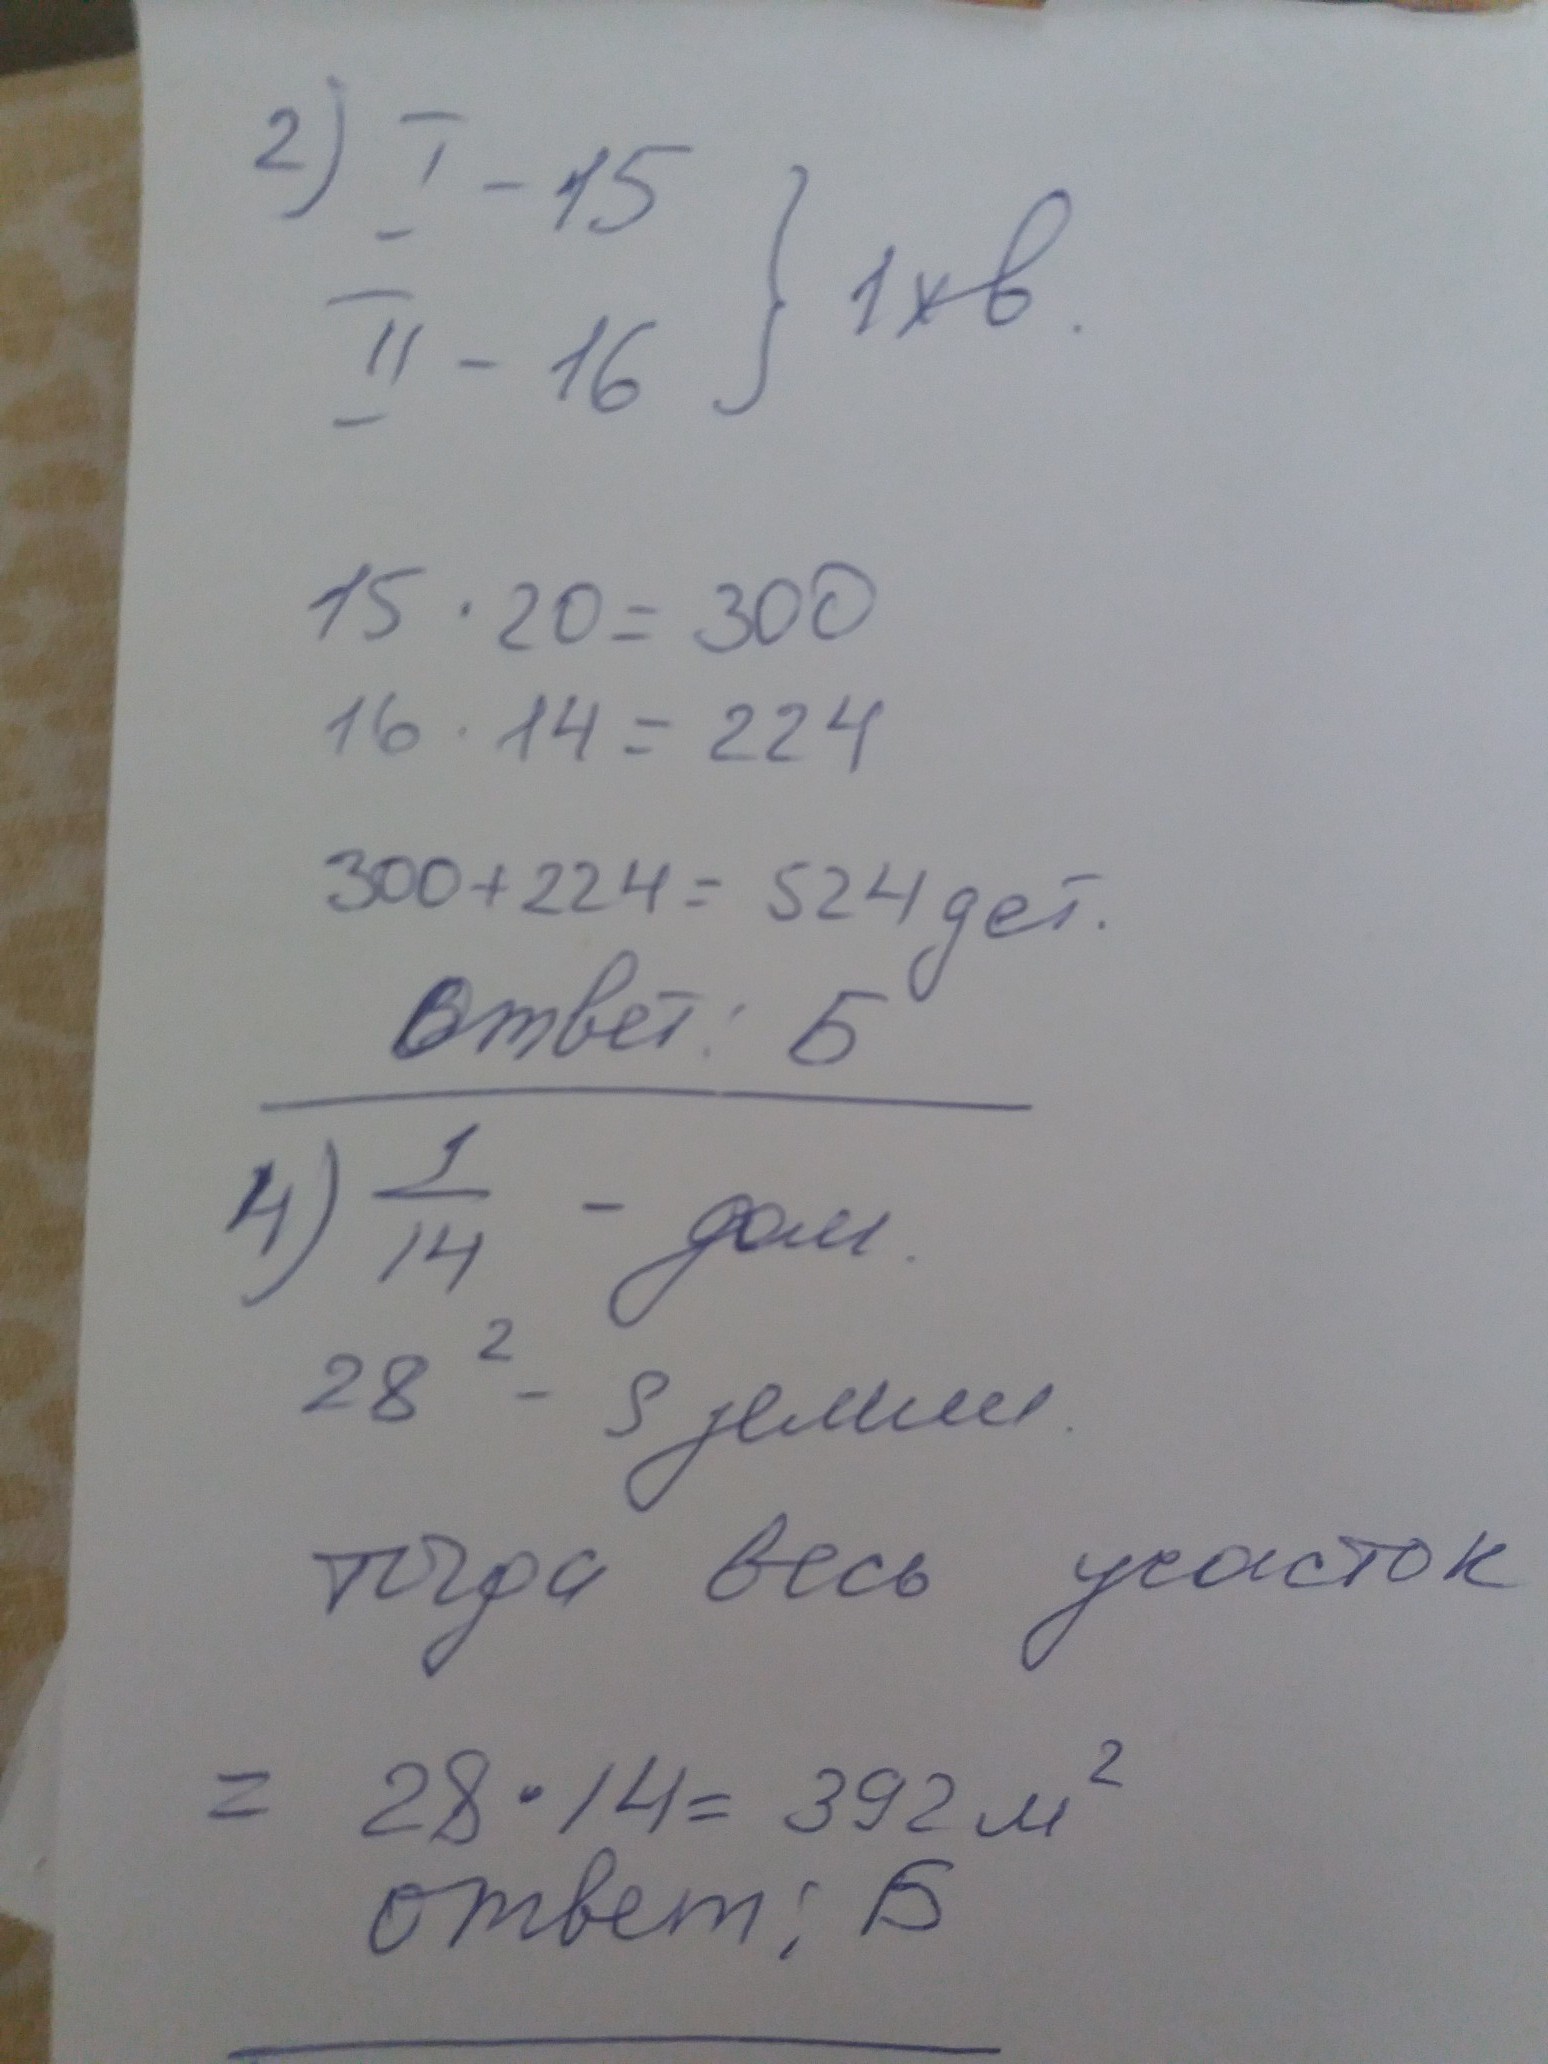 2) I - 15
II - 16 } 1 хв.
15 · 20 = 300
16 · 14 = 224
300+224= 524 дет.
Ответ: Б
4) 1/14 - дом.
28² - S земли.
тогда весь участок
= 28 · 14 = 392 м²
ответ: Б